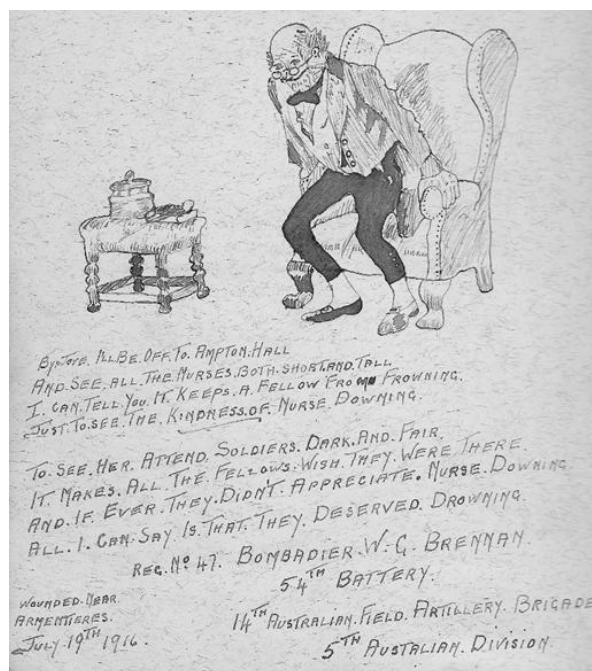 By. Jove. I'll. Be. Off. To. Ampton. Hall
And. See. All. The. Nurses. Both. Short. And. Tall
I. Can. Tell. You. It. Keeps. A. Fellow. From Frowning.
Just. To. See. The. Kindness. Of. Nurse. Downing.
To. See. Her. Attend. Soldiers. Dark. And. Fair.
It. Makes. All. The. Fellows. Wish. They. Were. There
And. If. Ever. They. Didn't. Appreciate. Nurse. Downing
All. I. Can. Say. Is. That. They. Deserved. Drowning.
Reg. No 47. Bombadier. W. G. Brennan.
54TH Battery.
Wounded. Near.
Armentieres.
July. 19TH 1916.
14TH Australian. Field. Artillery. Brigade
5TH Austalian. Division.